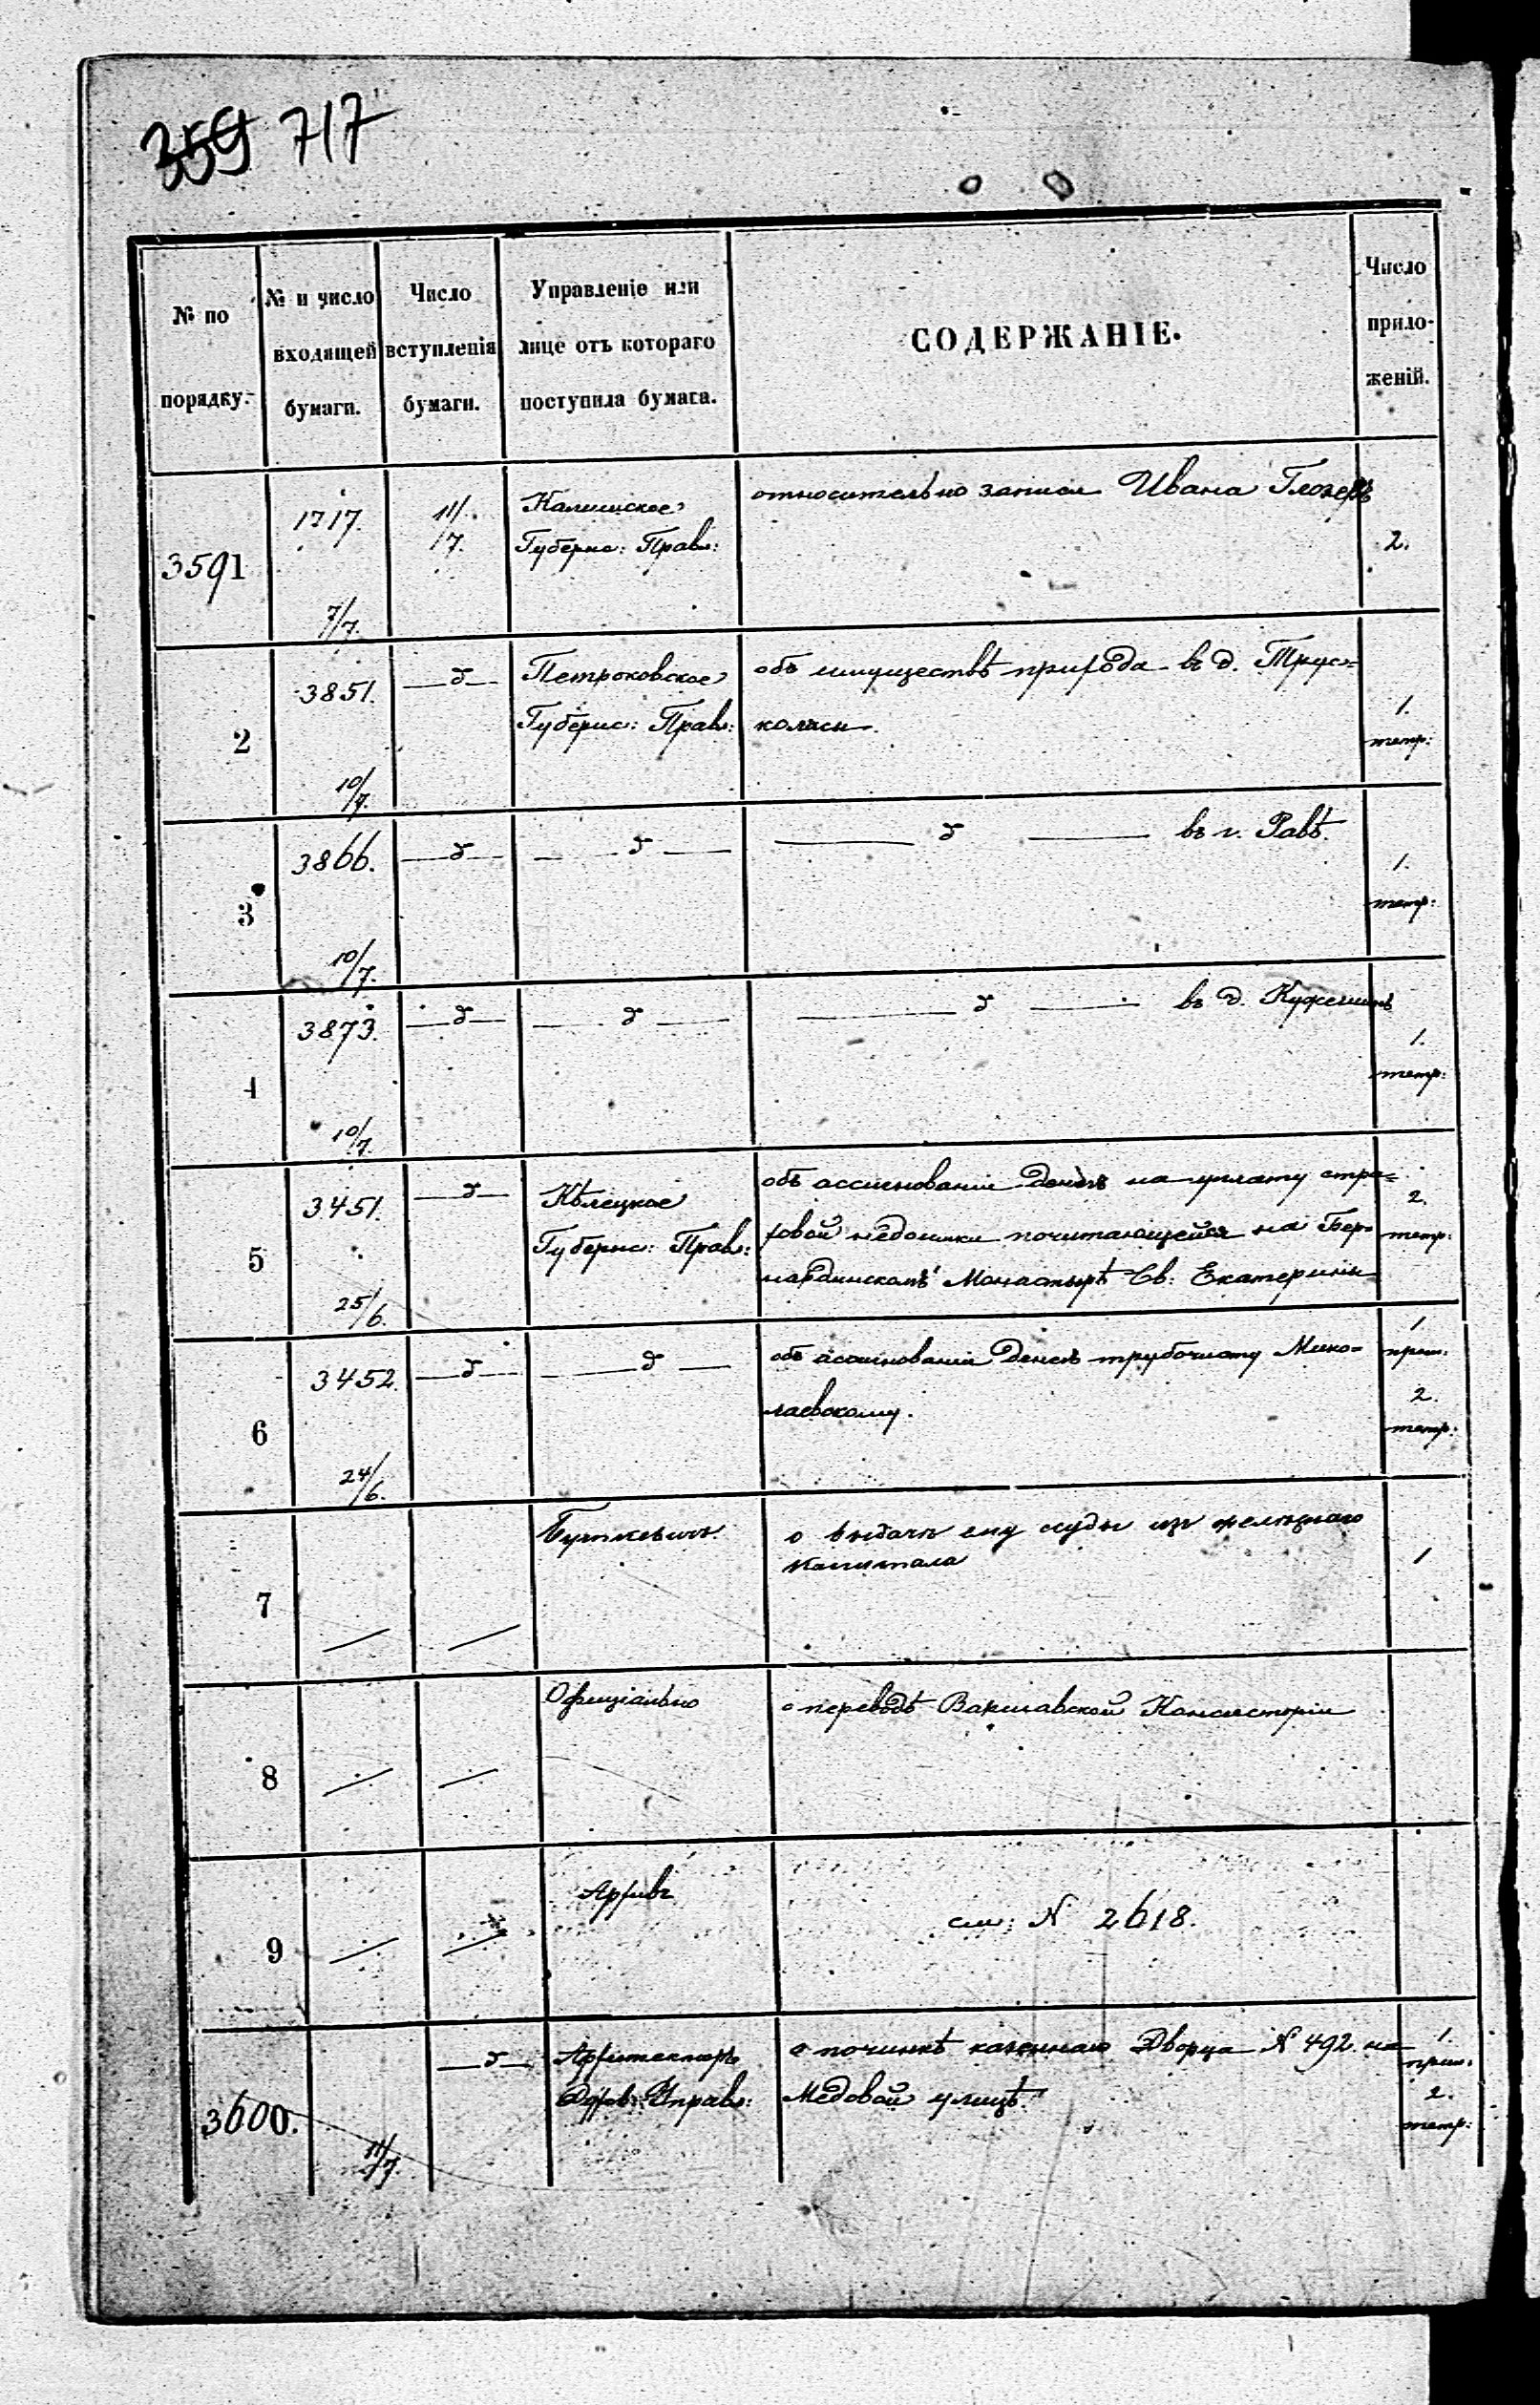 359 717
№ по порядку.
№ и число входящей бумаги.
Число вступленія бумаги.
Управленіе или лице отъ котораго поступила бумага.
СОДЕРЖАНІЕ.
Число приложеній.
3591
1717.
7/7.
11/7.
Калишское
Губернс: Правл:
относительно записи Ивана
2.
2
3851.
10/7.
—д—
Петроковское
Губернс: Правл:
объ имуществѣ прихода въ д. Трус=
коласы.
1.
тетр:
3
3866.
10/7.
—д—
— д —
— д — въ г. Равѣ.
1.
тетр:
4
3873.
10/7.
—д—
— д —
— д — въ д.
1.
тетр:
5
3451.
25/6.
—д—
Кѣлецкое
Губернс: Правл:
объ ассигнованіи денегъ на уплату стра=
ховой недоимки почитающейся на Бер=
нардинскомъ Монастырѣ Св: Екатерины
2.
тетр:
6
3452.
24/6.
—д—
— д —
объ ассигнованіи денегъ трубочисту Мико=
лаевскому.
1
прил.
2.
тетр:
7
Буткевичъ.
о выдачѣ ему ссуды изъ
капитала
1
8
Офиціально
о переводѣ Варшавской Консисторіи
9
Архивъ
см: N 2618.
3600.
11/7.
—д—
Архитекторъ
Духов: Управл:
о починкѣ казеннаго Дворца N 492 на
Медовой улицѣ.
1.
прил:
2.
тетр: